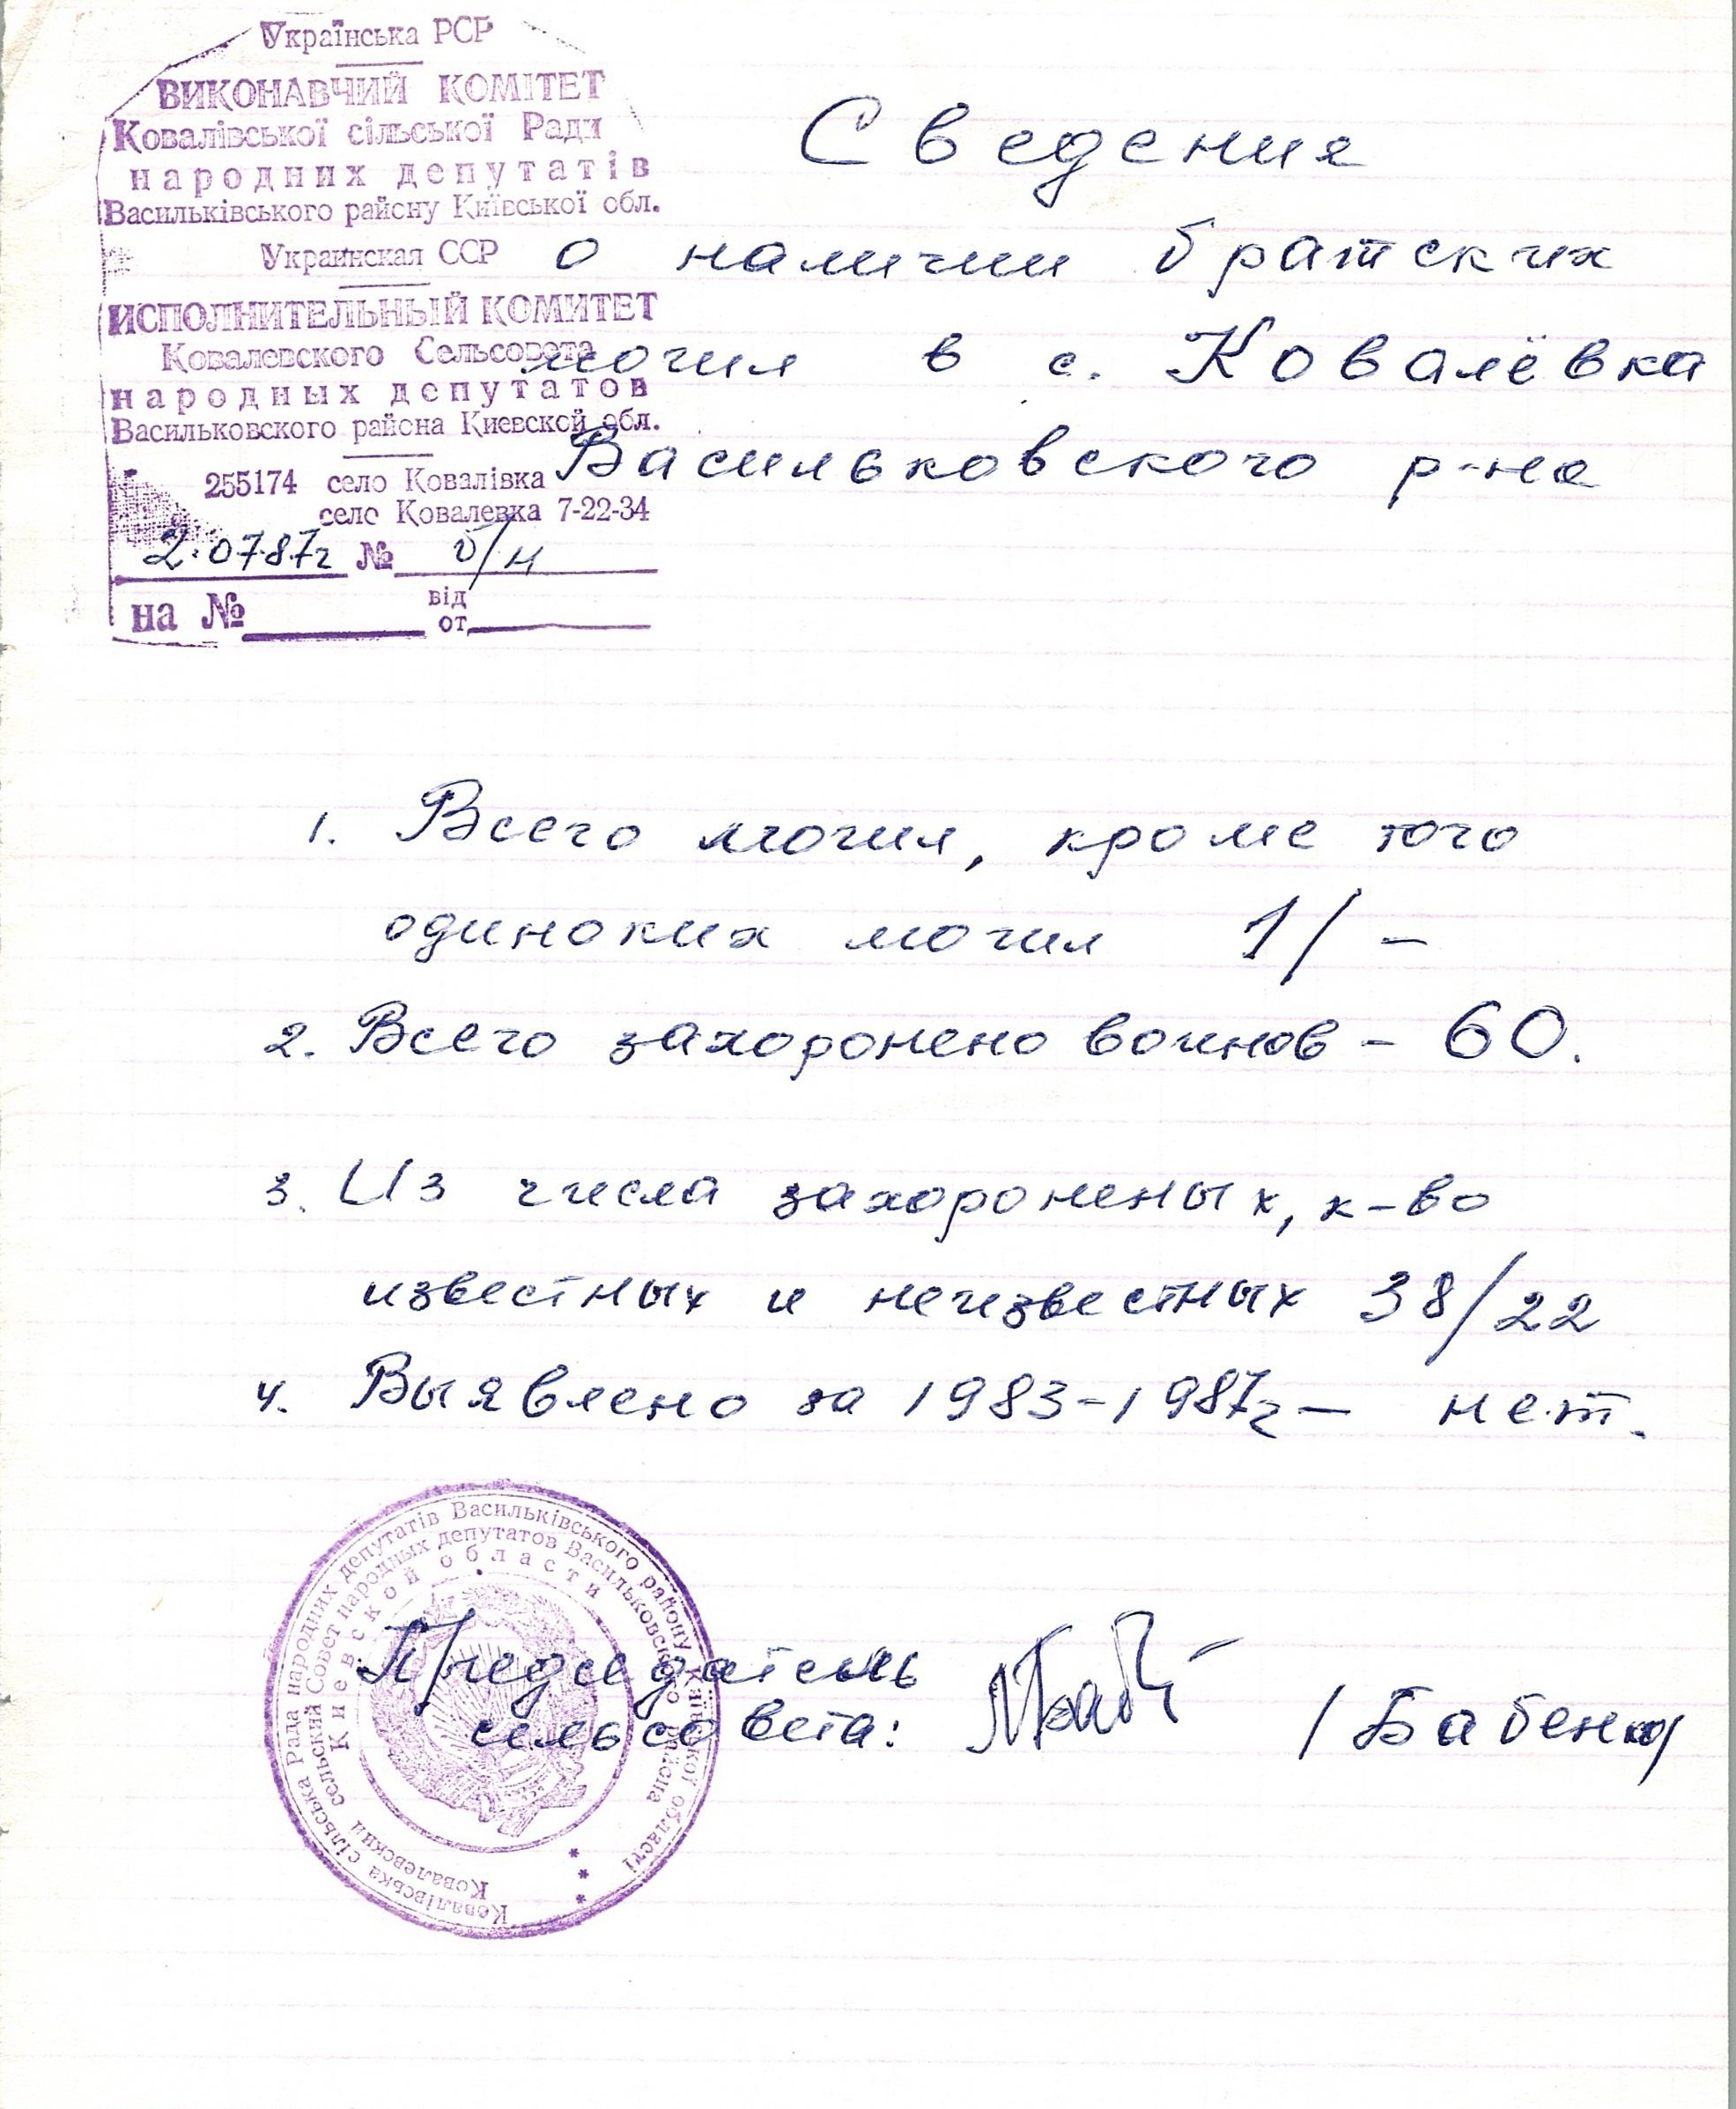 Українська РСР
ВИКОНАВЧИЙ КОМІТЕТ
Ковалівської сільської Ради
народних депутатів
Васильківського району Київської обл.
Украинская ССР
ИСПОЛНИТЕЛЬНЫЙ КОМИТЕТ
Ковалевского Сельсовета
народных депутатов
Васильковского района Киевской обл.
255174 село Ковалівка
село Ковалевка 7-22-34
2.07.87г № б/н
на № від
от
Сведения
о наличии братских
могил в с. Ковалёвка
Васильковского р-на
1. Всего могил, кроме того
одиноких могил 1/ –
2. Всего захоронено воинов – 60.
3. Из числа захороненых, к-во
известных и неизвестных 38/22
4. Выявлено за 1983-1987г – нет.
Председатель
сельсовета: /Бабенко/
Ковалівська сільська Рада народних депутатів Васильківського району Київської області
Ковалевский сельский Совет народных депутатов Васильковского района
Киевской области